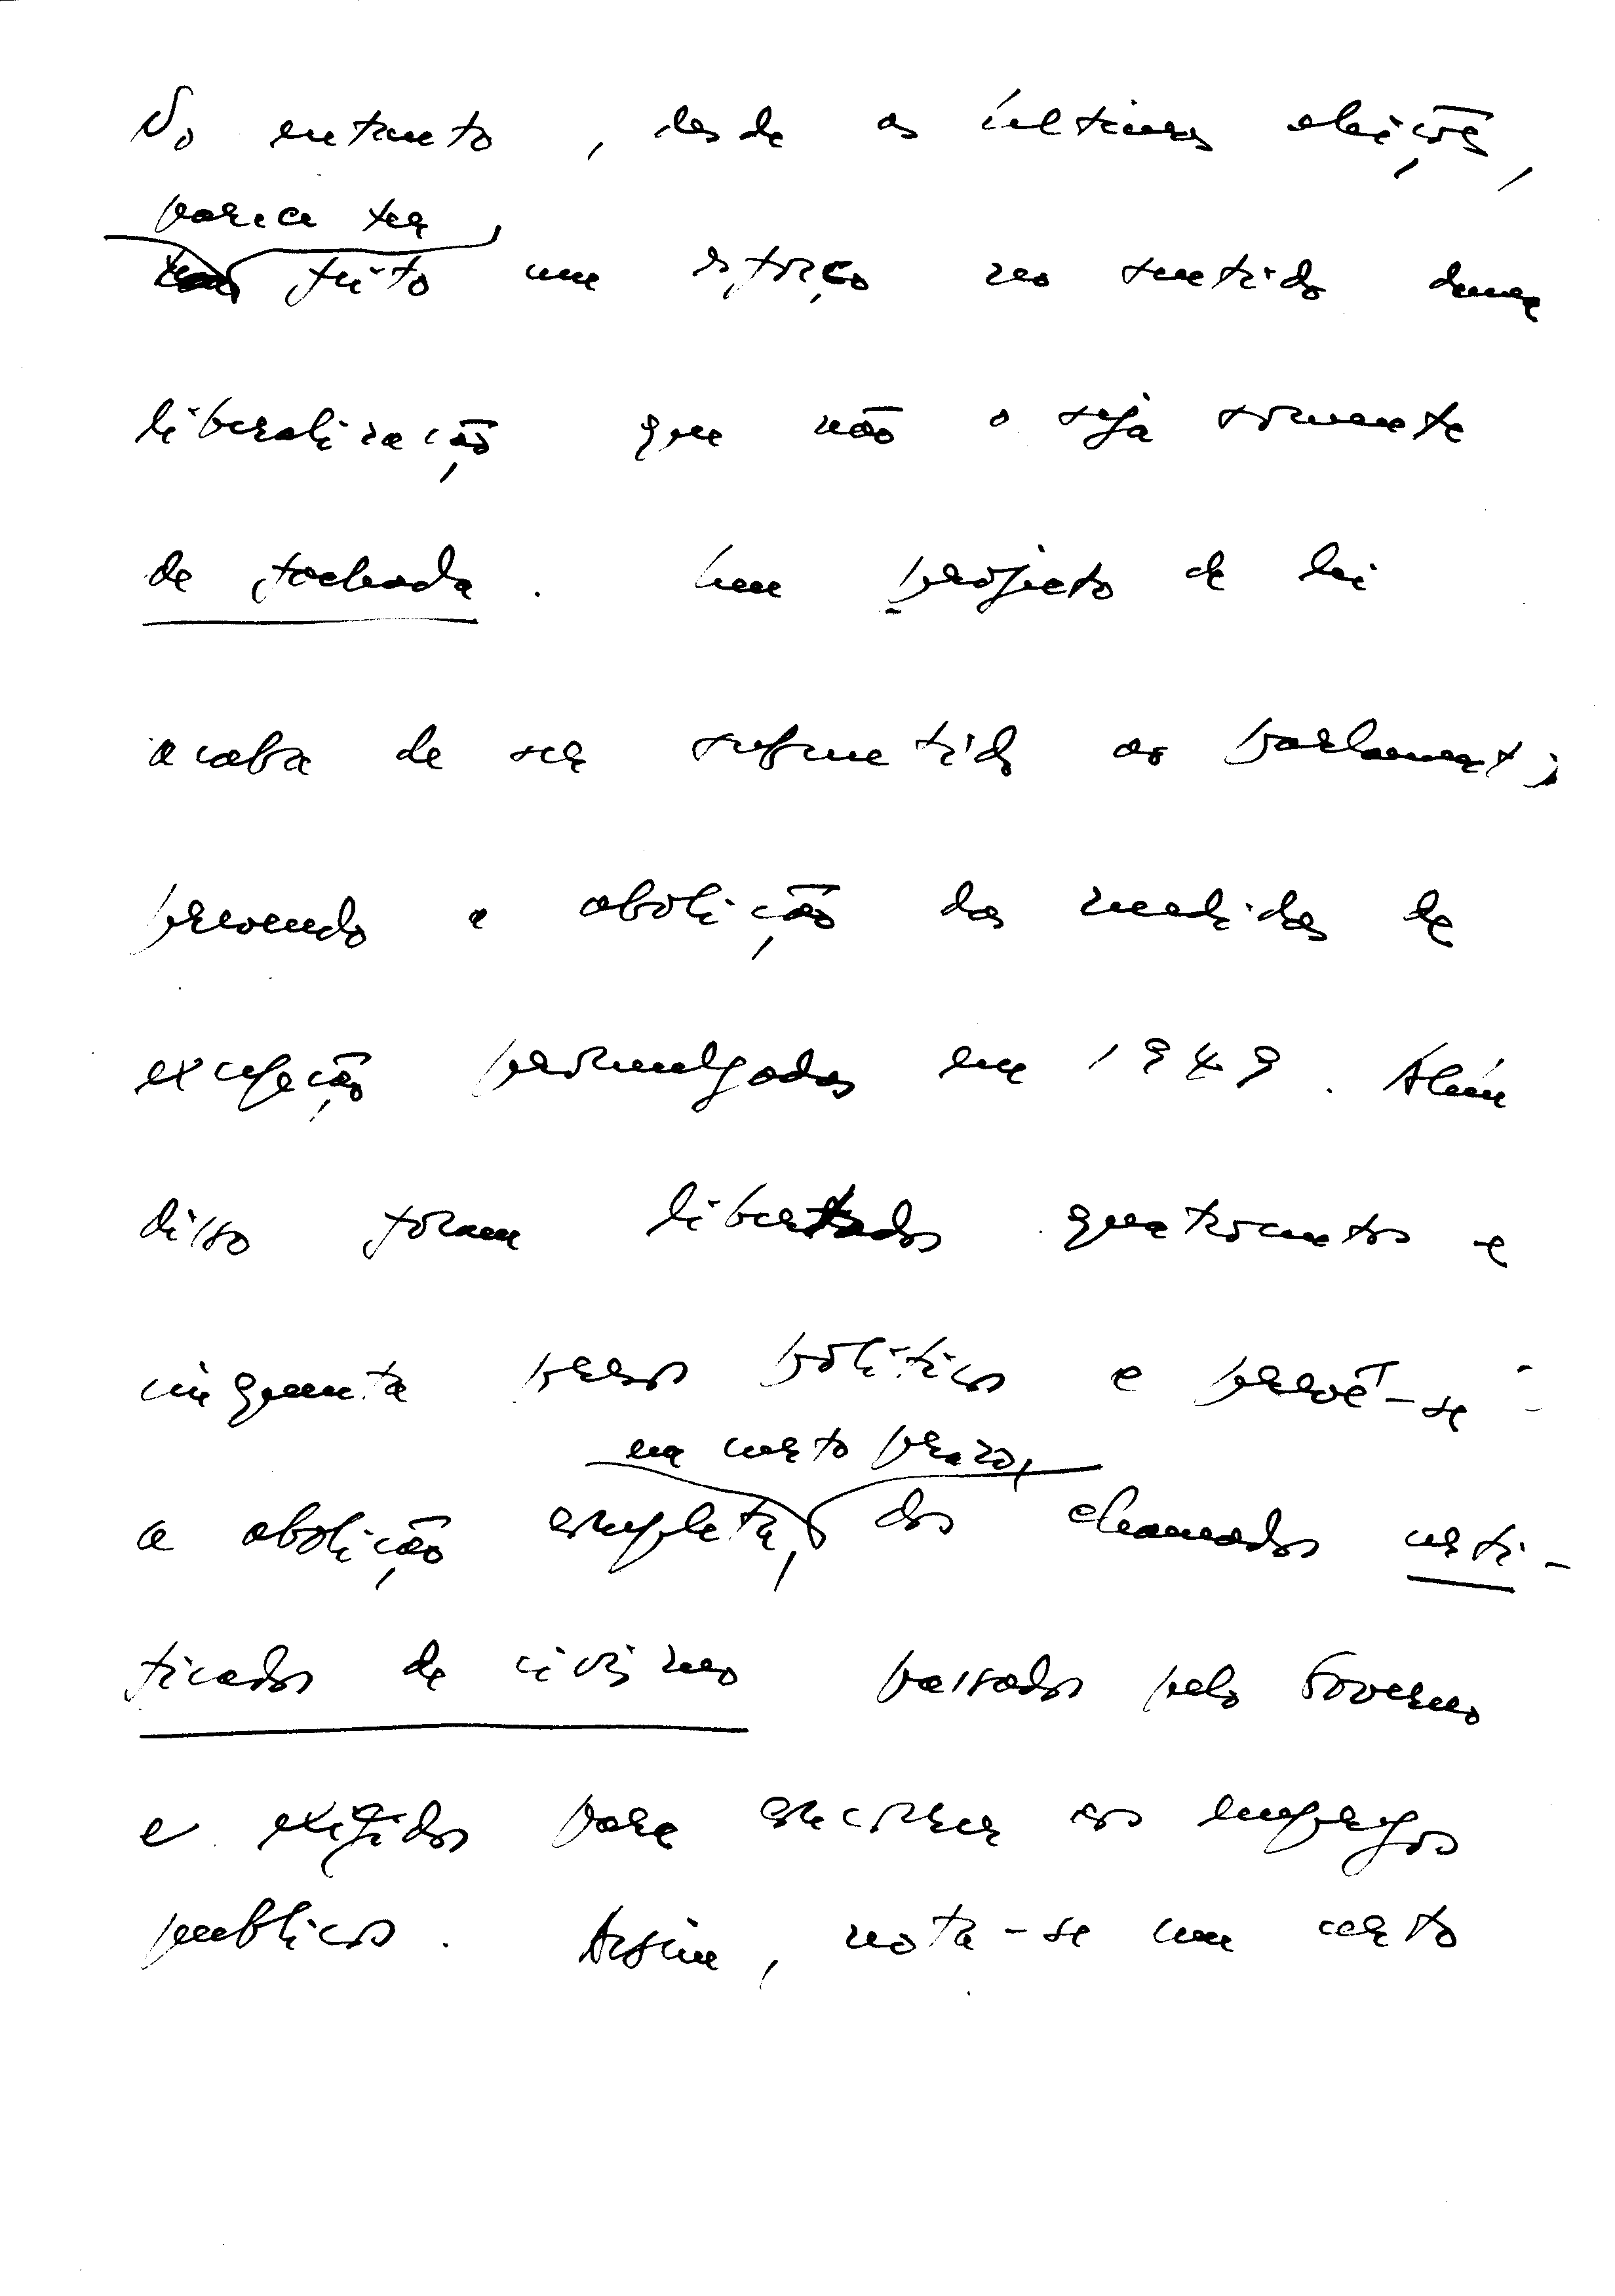 No entanto, desde as últimas eleições,
parece ter
feito um esforço no sentido duma
liberalização que não o seja somente
de fachada. Um projecto de lei
acaba de ser submetido ao parlamento,
prevendo a abolição das medidas de
excepção promulgadas em 1949. Além
disso foram libertados quatrocentos e
cinquenta presos políticos e prevê-se
em curto prazo,
a abolição completa, dos chamados certi-
ficados de civismo passados pelo Governo
e exigidos para concorrer aos empregos
publicos. Assim, nota-se um certo